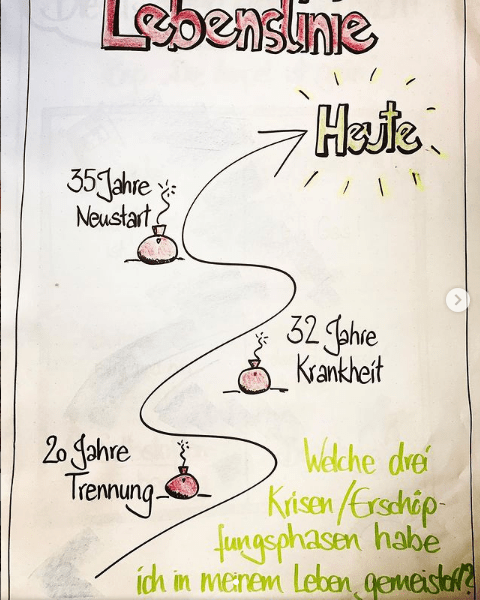 Lebenslinie
Heute
35 Jahre
Neustart
32 Jahre
Krankheit
20 Jahre
Trennung
Welche drei
Krisen/Erschöp-
fungsphasen habe
ich in meinem Leben gemeistert?